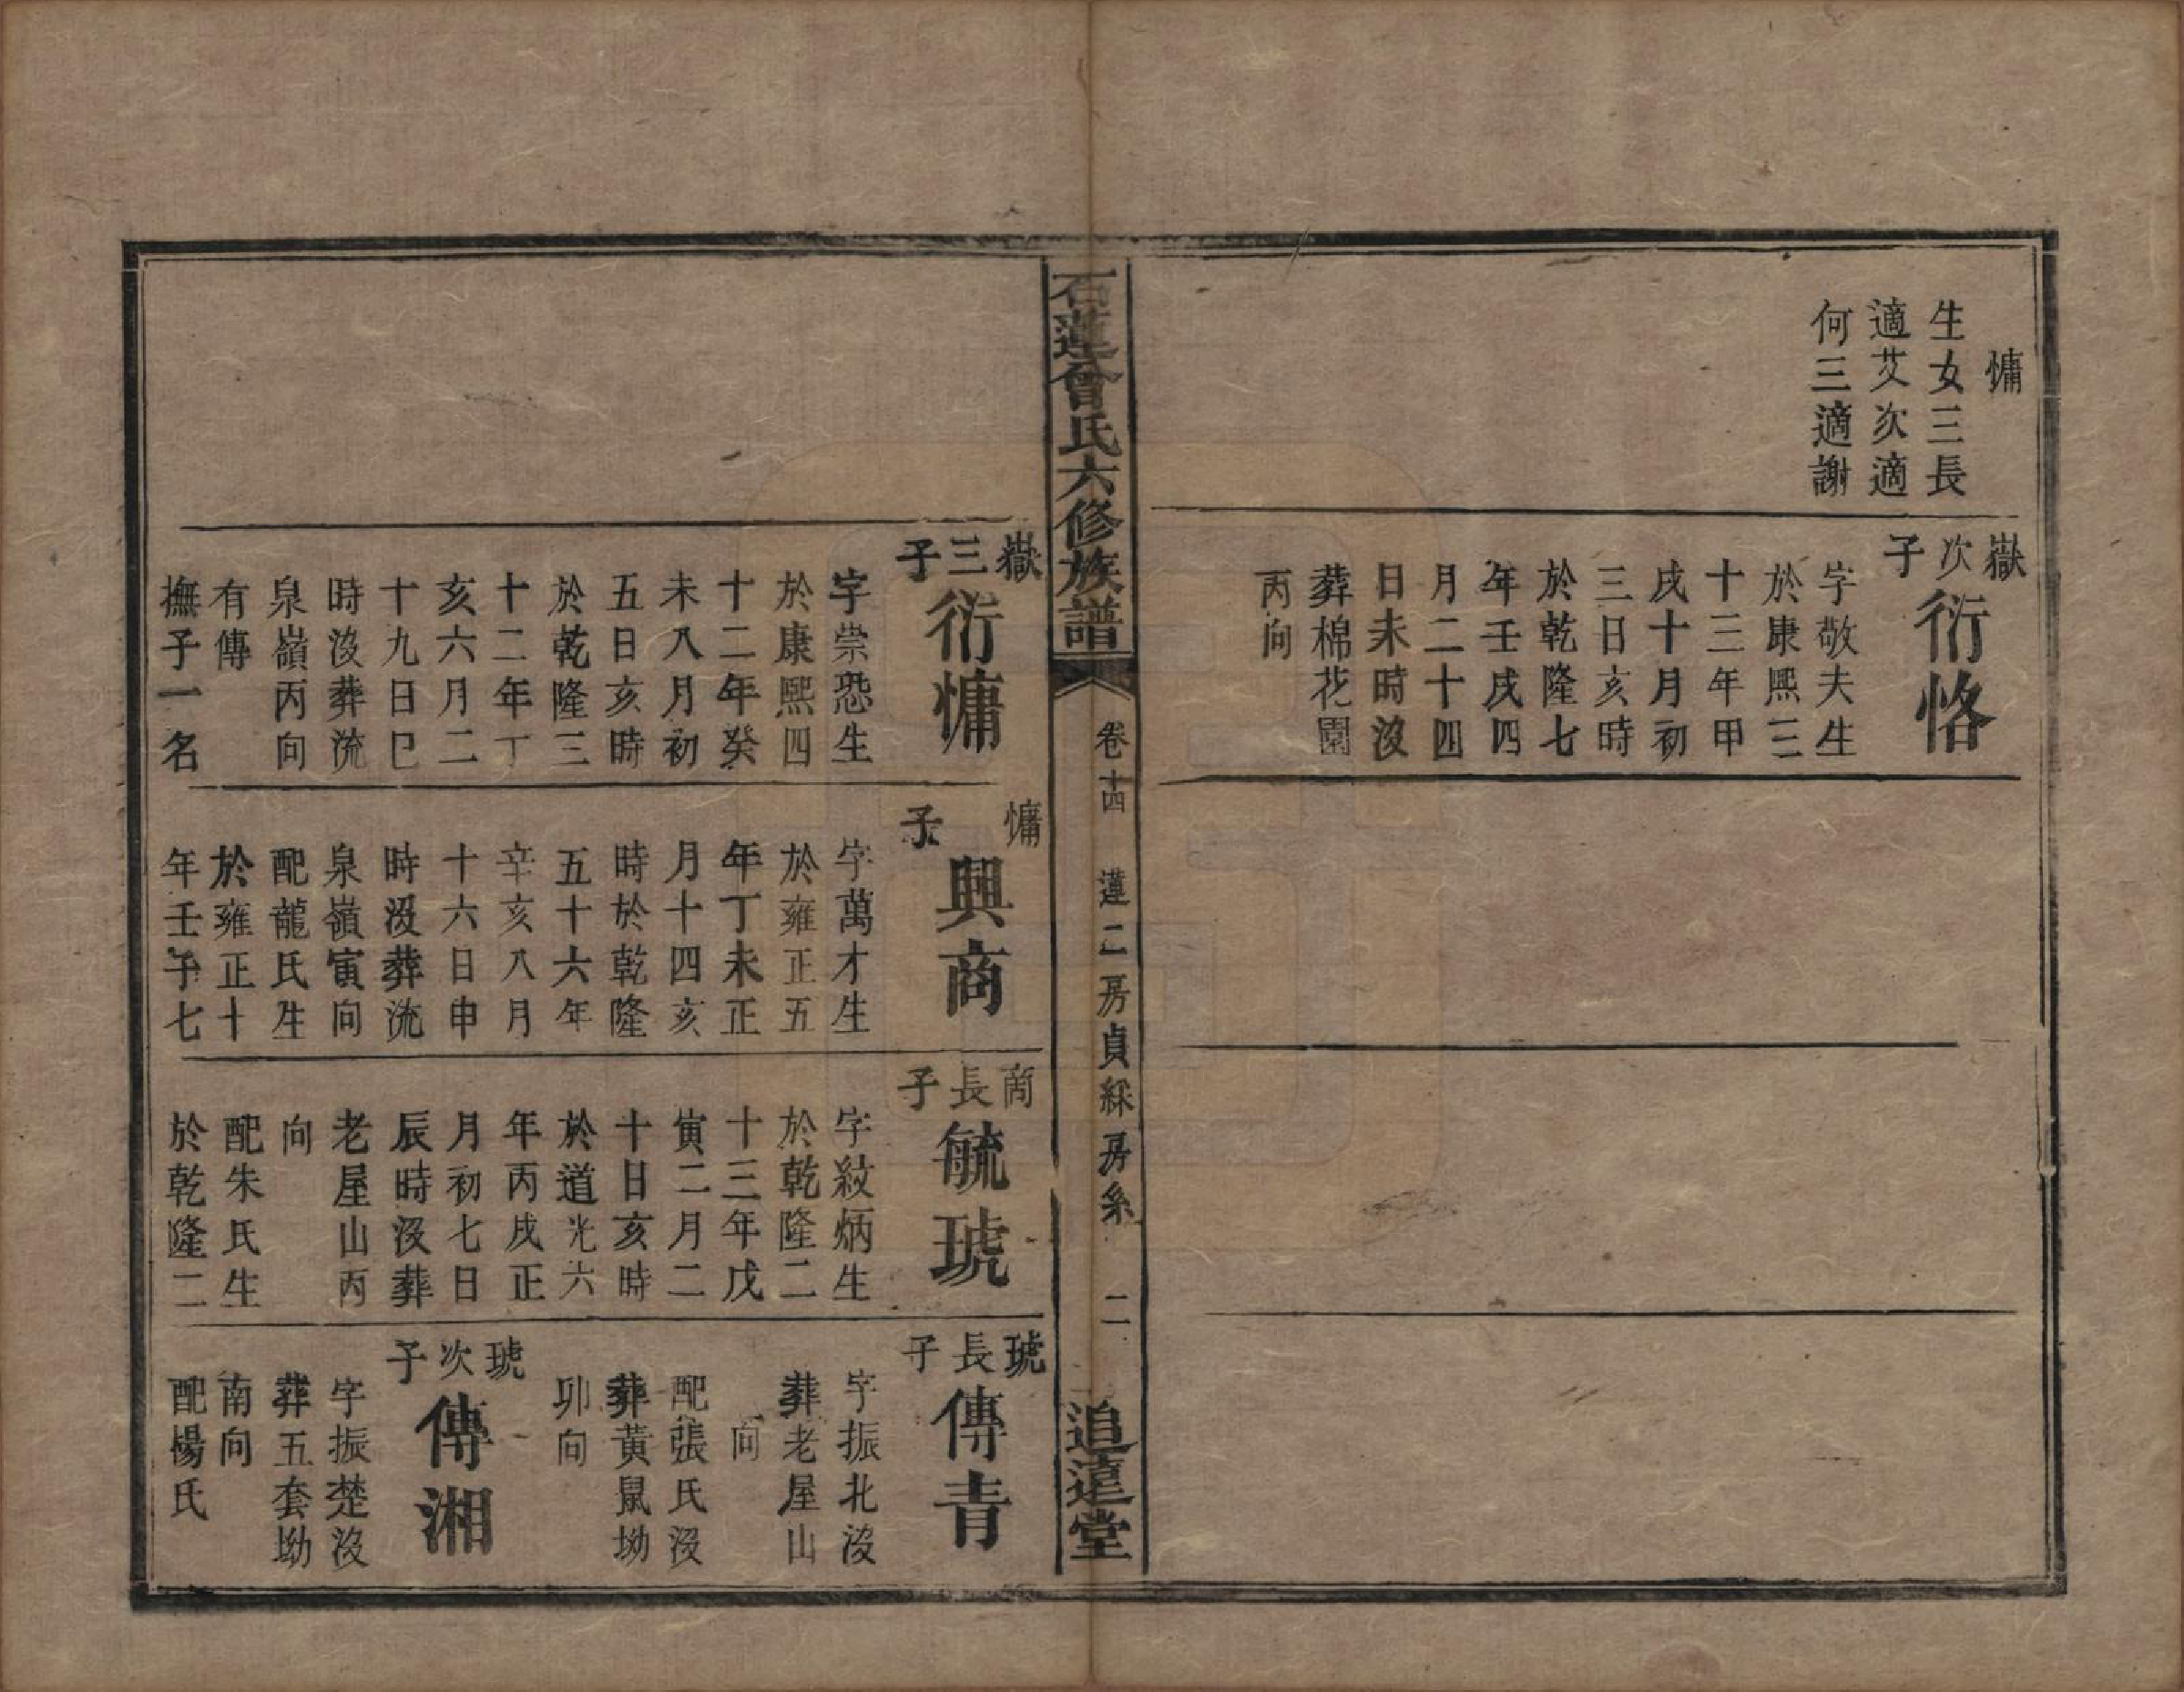 慵
生女三長
適艾次適
何三適謝
嶽次子
衍恪
字敬夫生
於康熙三
十三年甲
戌十月初
三日亥時
於乾隆七
年壬戌四
月二十四
日未時沒
葬棉花園
丙向
石蓮曾氏六修族譜
卷十四
蓮二房貞綵房系
二
追遠堂
嶽三子
衍慵
字崇恐生
於康熙四
十二年癸
未八月初
五日亥時
於乾隆三
十二年丁
亥六月二
十九日巳
時沒葬流
泉嶺丙向
有傳
撫子一名
慵子
興商
字萬才生
於雍正五
年丁未正
月十四亥
時於乾隆
五十六年
辛亥八月
十六日申
時沒葬流
泉嶺寅向
配龍氏生
於雍正十
年壬子七
商長子
毓琥
字紋炳生
於乾隆二
十三年戊
寅二月二
十日亥時
於道光六
年丙戌正
月初七日
辰時沒葬
老屋山丙
向
配朱氏生
於乾隆二
琥長子
傳青
字振北沒
葬老屋山
向
配張氏沒
葬黃鼠坳
卯向
琥次子
傳湘
字振楚沒
葬五套坳
南向
配楊氏